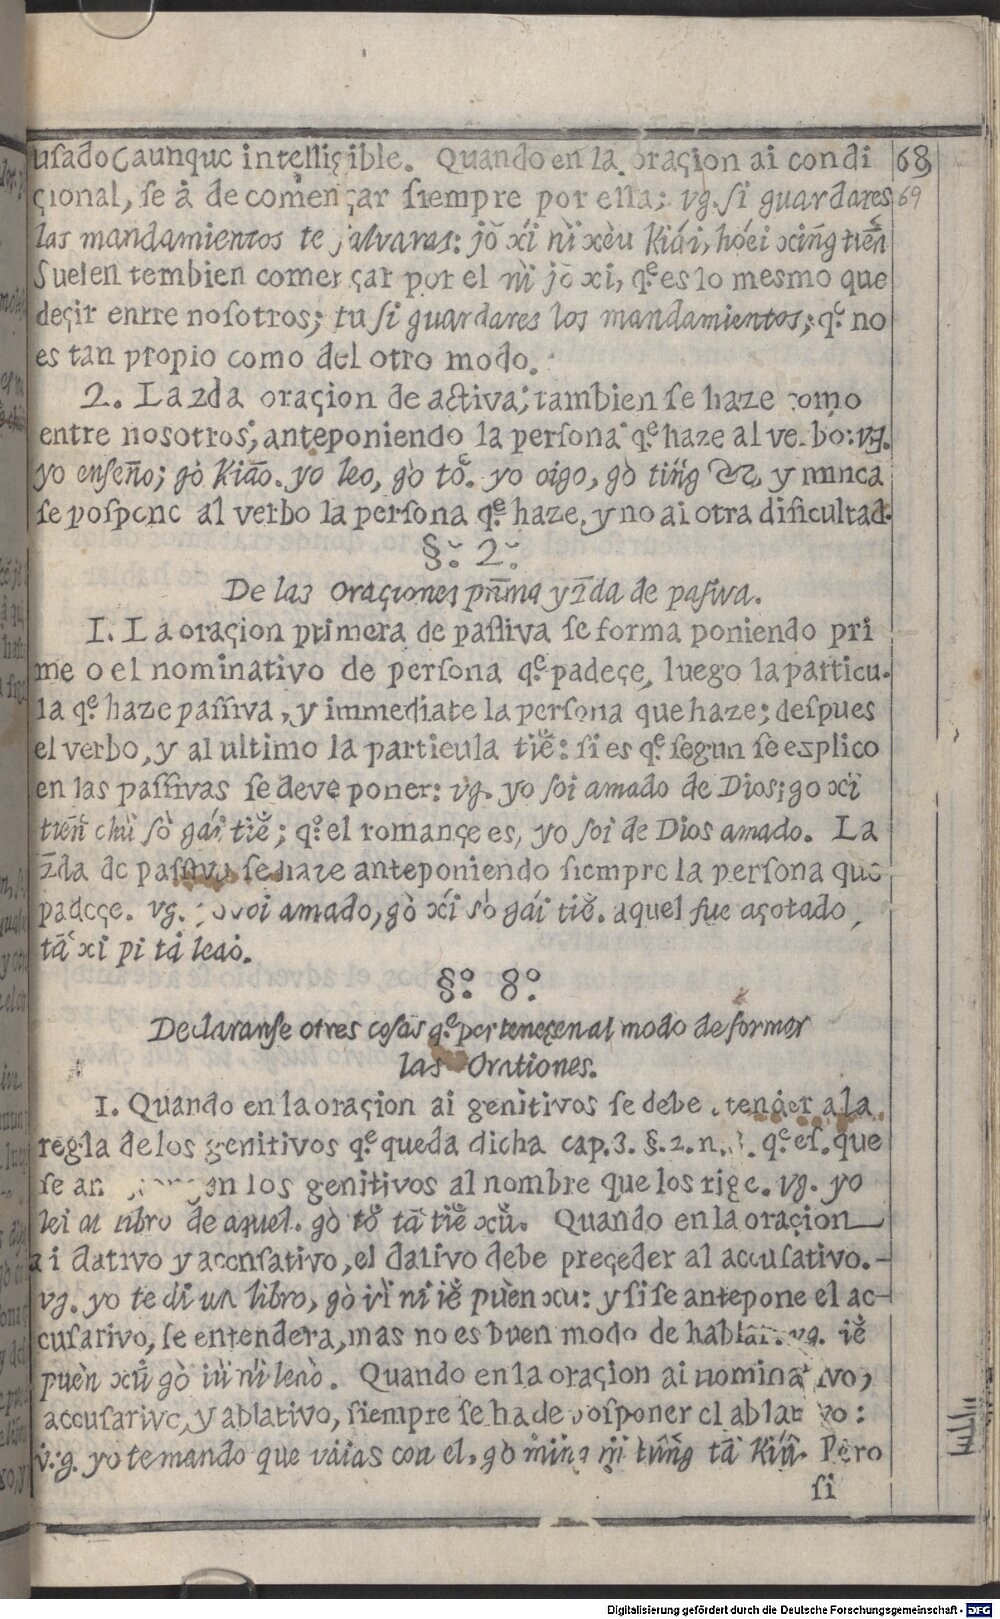 usado(aunque intelligible. Quando en la oraçion ai condi
çional, se à de començar siempre por ella; vg. si guardares
las mandamientos te salvaras: jŏ xí nì xèu kiái, hóei xiñg tiēn
Suelen tembien començar por el nì jŏ xi, q.e es lo mesmo que
deçir entre nosotros; tu si guardares los mandamientos; q.e no
es tan propio como del otro modo.
2. La 2da oraçion de activa; tambien se haze como
entre nosotros; anteponiendo la persona q.e haze al verbo: vg.
yo enseño; gò Kiāo. yo leo, gò tŏ. yo oigo, gò tiñg &c, y nunca
se pospone al verbo la persona q.e haze, y no ai otra dificultad.
§. 2.
De las oraçiones prīma y 2da de pasiva.
1. La oraçion primera de passiva se forma poniendo pri
me o el nominativo de persona q.e padeçe, luego la particu-
la q.e haze passiva, y immediate la persona que haze; despues
el verbo, y al ultimo la particula tiĕ: si es q.e segun se explico
en las passivas se deve poner: vg. yo soi amado de Dios; go xí
tiēn chù sò gái tiĕ; q.e el romançe es, yo soi de Dios amado. La
2da de passiva se haze anteponiendo siempre la persona que
padeçe. vg. yo soi amado, gò xí sò gái tiĕ. aquel fue açotado,
tā xi pi tà leaò.
§.o 8.o
Declaranse otres cosas q.e perteneçen al modo de formar
las Orationes.
1. Quando en la oraçion ai genitivos se debe atender a la
regla de los genitivos q.e queda dicha cap. 3. §. 2. n. q.e es. que
se an en los genitivos al nombre que los rige. vg. yo
lei el libro de aquel. gò tŏ tā tiĕ xū. Quando en la oraçion
ai dativo y accusativo, el dativo debe preçeder al accusativo.-
vg. yo te di un libro, gò iù nì iĕ puèn xu: y si se antepone el ac-
cusativo, se entendera, mas no es buen modo de hablar. vg. iĕ
puèn xū gò iù nì leaò. Quando en la oraçion ai nominativo,
accusativo, y ablativo, siempre se ha de posponer el ablativo:
v.g. yo te mando que vaias con el, gò mińg nì tuñg tā Kiú. Pero
si
68
69
Digitalisierung gefördert durch die Deutsche Forschungsgemeinschaft - DFG